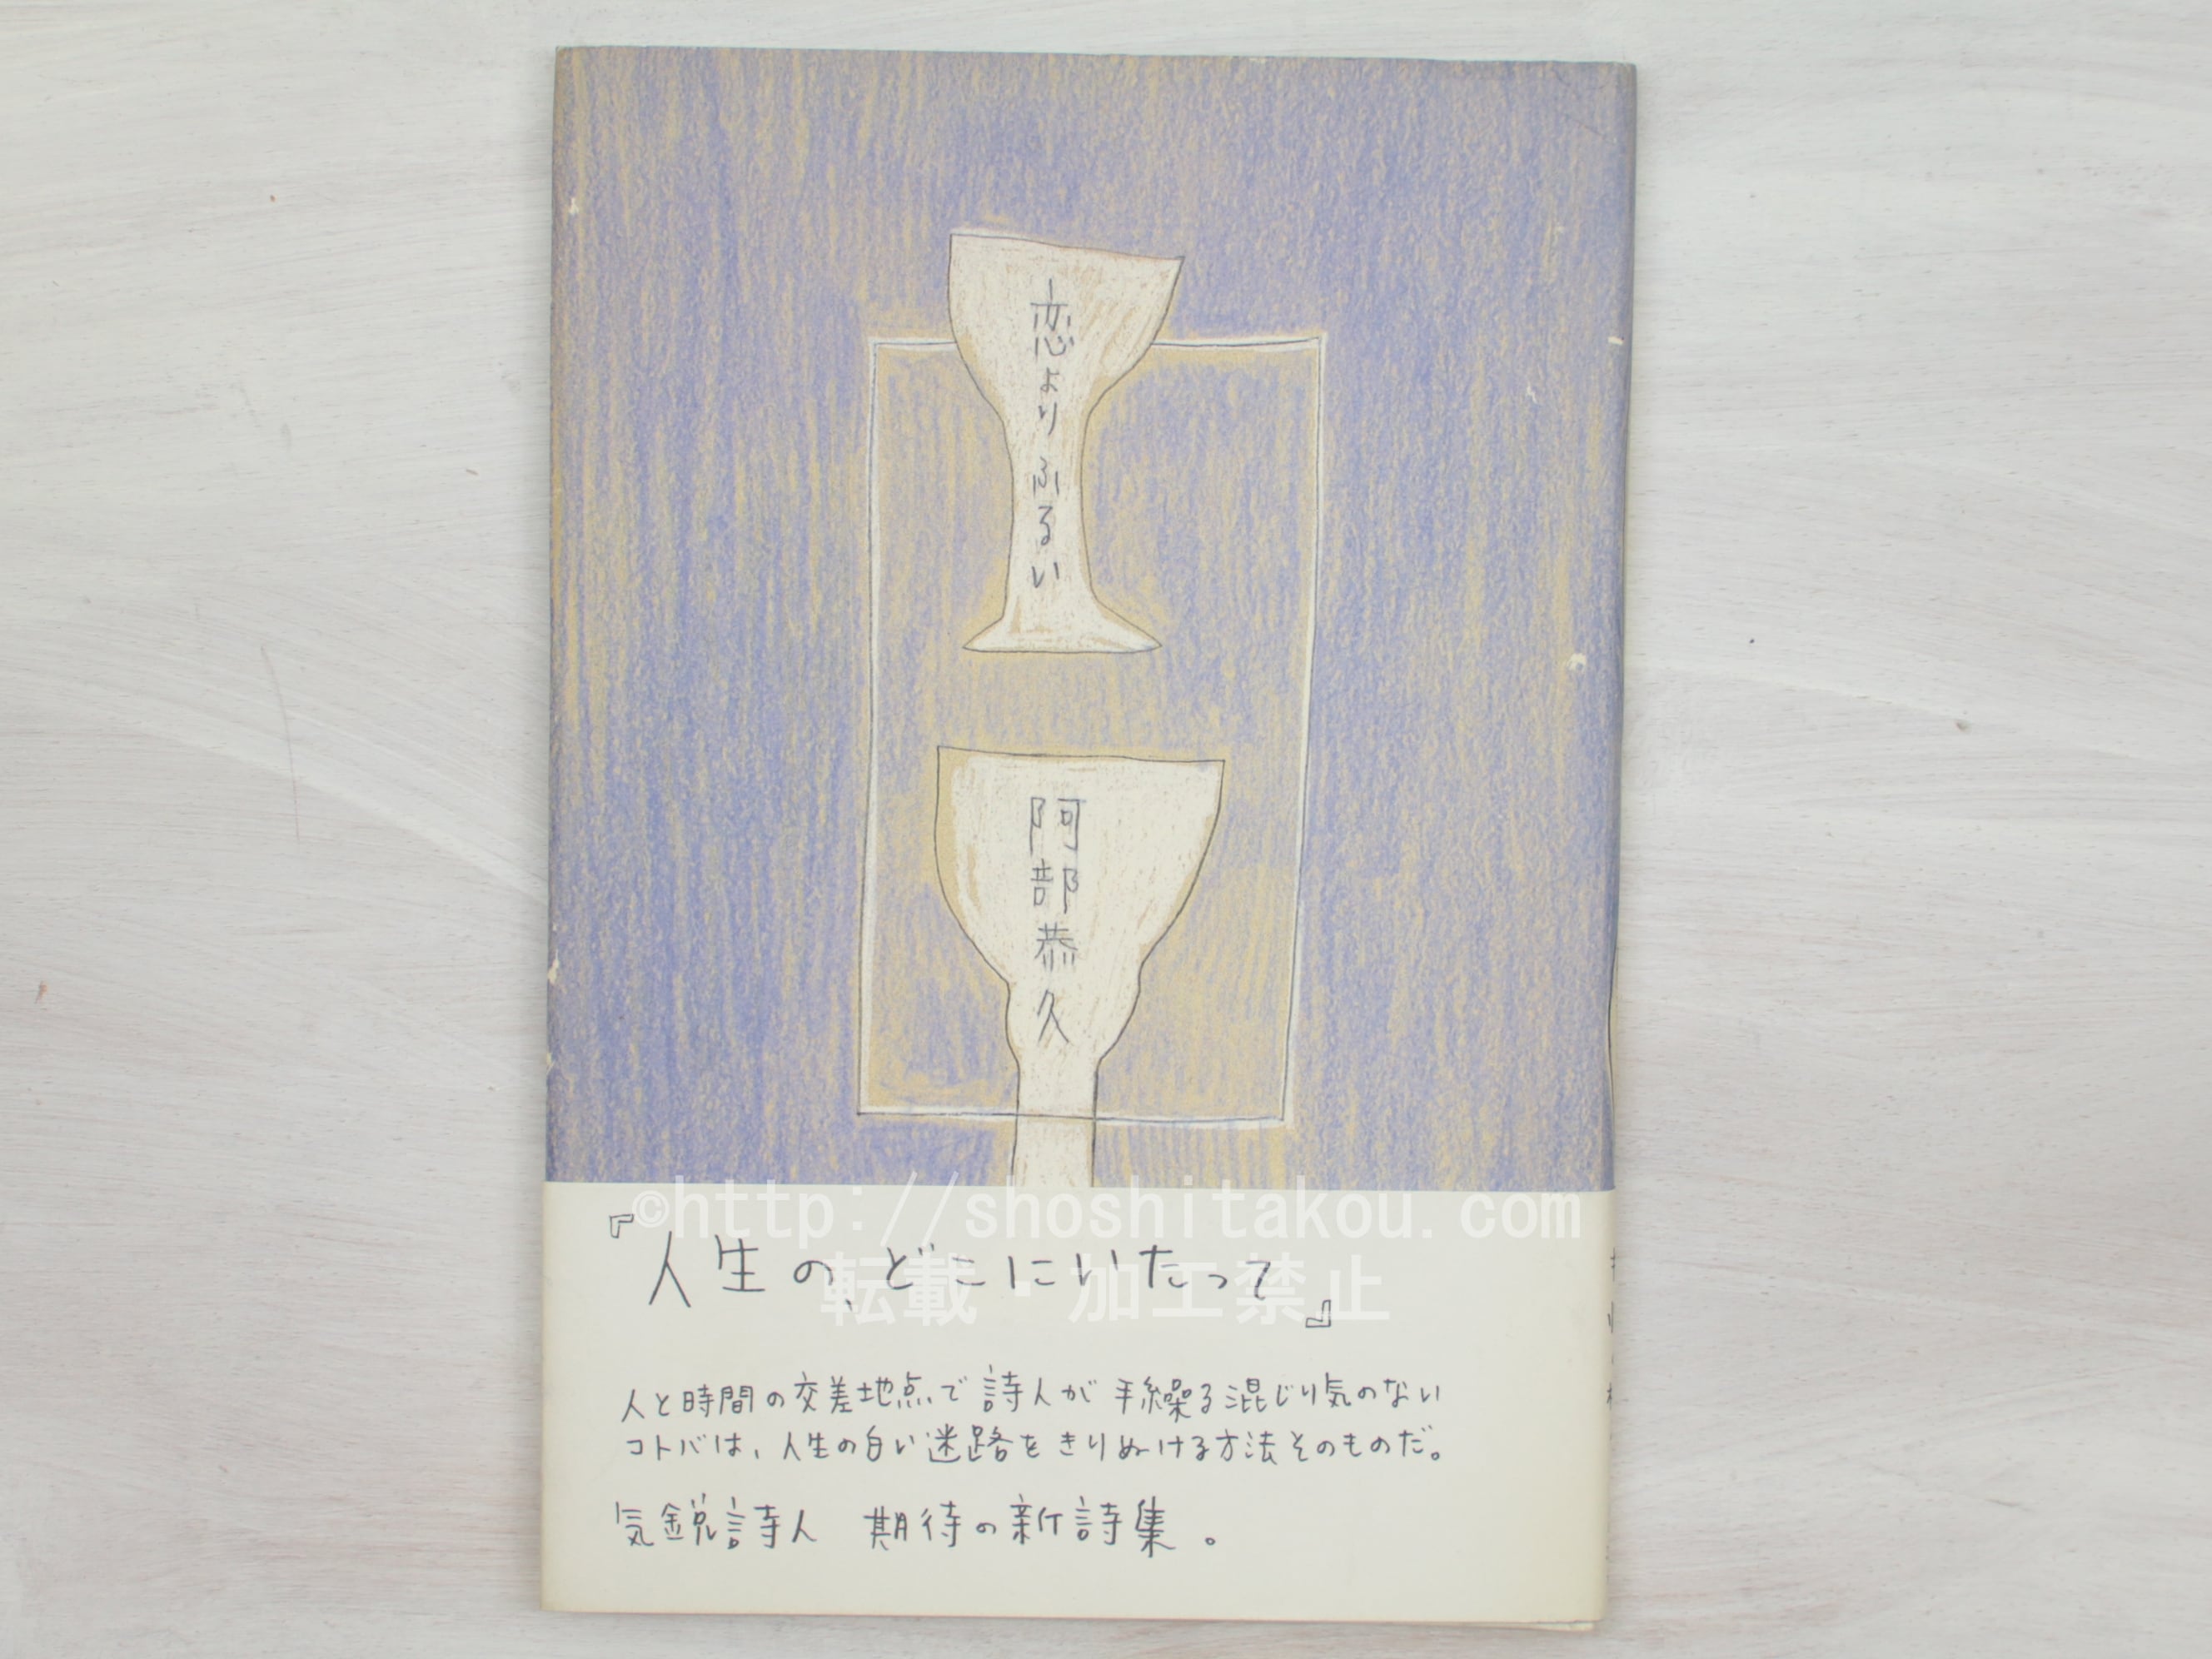 恋より ふるい
阿部恭久
©http://shoshitakou.com
転載・加工禁止
『人生の、どこにいたって』
人と時間の交差地点で詩人が手繰る混じり気のない
コトバは、人生の白い迷路をきりぬける方法そのものだ。
気鋭詩人 期待の新詩集。